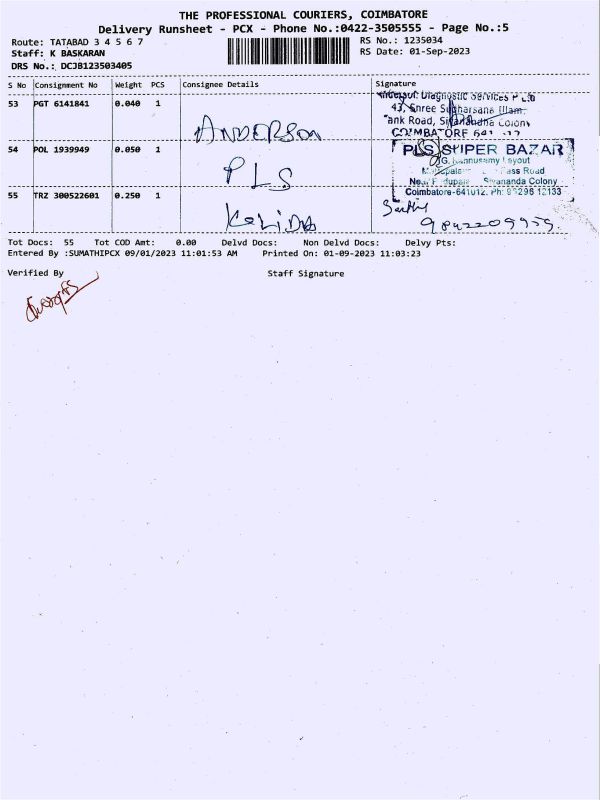 THE PROFESSIONAL COURIERS, COIMBATORE
Delivery Runsheet - PCX - Phone No.:0422-3505555 - Page No.:5
Route: TATABAD 3 4 5 6 7
RS No.: 1235034
Staff: K BASKARAN
RS Date: 01-Sep-2023
DRS No.: DCJB123503405
S No Consignment No Weight PCS Consignee Details Signature
53 PGT 6141841 0.040 1
Diagnostic Services P Ltd
43, Shree Sudharsana Illam,
Tank Road, Colony
COIMBATORE 641
ANDERSON
54 POL 1939949 0.050 1
PLS SUPER BAZAR
Layout
Pass Road
Sivananda Colony
PLS
55 TRZ 300522601 0.250 1
Coimbatore-641012. Ph:
9842209959.
Tot Docs: 55 Tot COD Amt: 0.00 Delvd Docs: Non Delvd Docs: Delvy Pts:
Entered By :SUMATHIPCX 09/01/2023 11:01:53 AM Printed On: 01-09-2023 11:03:23
Verified By Staff Signature